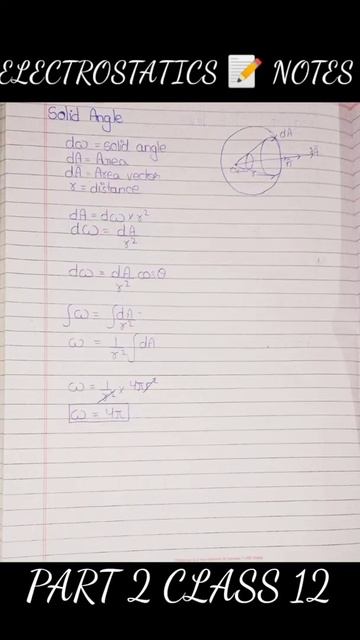 ELECTROSTATICS 📝 NOTES
Solid Angle
dω = solid angle
dA = Area
dA = Area vector
r = distance
dA
dA = dω × r²
dω = dA/r²
dω = dA/r² cosθ
∫ω = ∫dA/r²
ω = 1/r² ∫dA
ω = 1/r² × 4πr²
ω = 4π
PART 2 CLASS 12